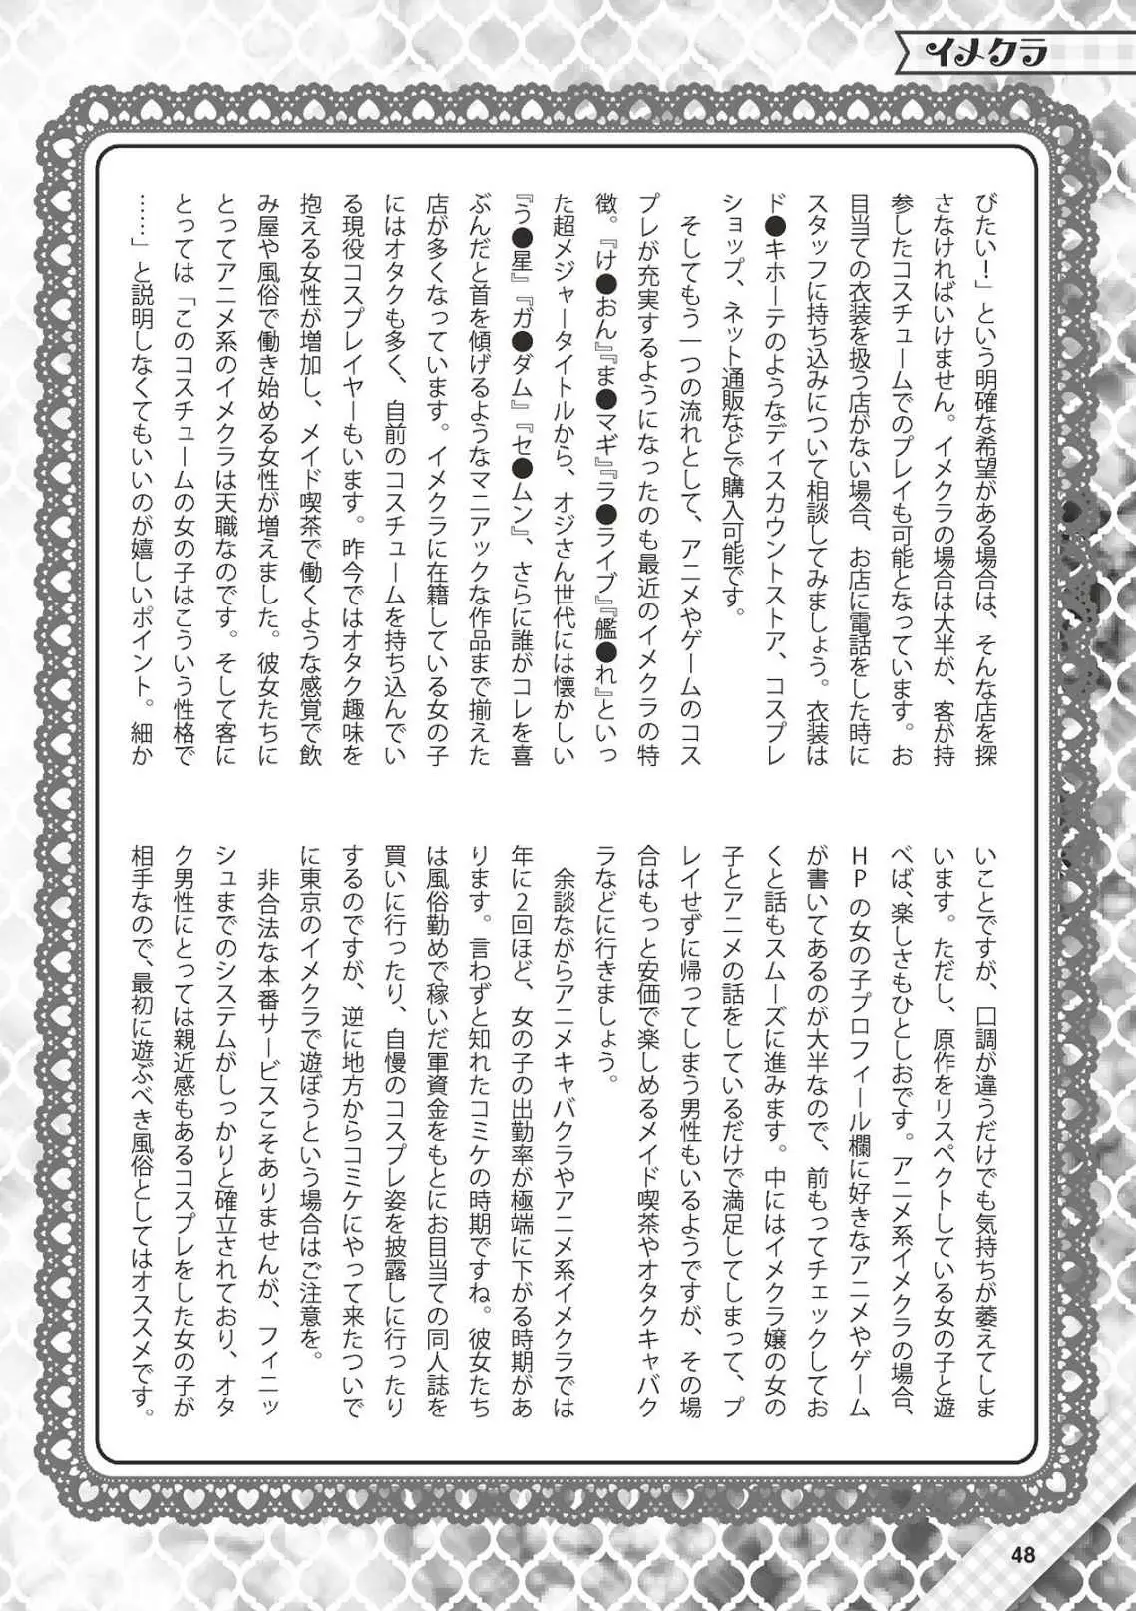 イメクラ
びたい！」という明確な希望がある場合は、そんな店を探
さなければいけません。イメクラの場合は大半が、客が持
参したコスチュームでのプレイも可能となっています。お
目当ての衣装を扱う店がない場合、お店に電話をした時に
スタッフに持ち込みについて相談してみましょう。衣装は
ド●キホーテのようなディスカウントストア、コスプレ
ショップ、ネット通販などで購入可能です。
そしてもう一つの流れとして、アニメやゲームのコス
プレが充実するようになったのも最近のイメクラの特
徴。『け●おん』『ま●マギ』『ラ●ライブ』『艦●れ』といっ
た超メジャータイトルから、オジさん世代には懐かしい
『う●星』『ガ●ダム』『セ●ムン』、さらに誰がコレを喜
ぶんだと首を傾げるようなマニアックな作品まで揃えた
店が多くなっています。イメクラに在籍している女の子
にはオタクも多く、自前のコスチュームを持ち込んでい
る現役コスプレイヤーもいます。昨今ではオタク趣味を
抱える女性が増加し、メイド喫茶で働くような感覚で飲
み屋や風俗で働き始める女性が増えました。彼女たちに
とってアニメ系のイメクラは天職なのです。そして客に
とっては「このコスチュームの女の子はこういう性格で
……」と説明しなくてもいいのが嬉しいポイント。細か
いことですが、口調が違うだけでも気持ちが萎えてしま
います。ただし、原作をリスペクトしている女の子と遊
べば、楽しさもひとしおです。アニメ系イメクラの場合、
HPの女の子プロフィール欄に好きなアニメやゲーム
が書いてあるのが大半なので、前もってチェックしてお
くと話もスムーズに進みます。中にはイメクラ嬢の女の
子とアニメの話をしているだけで満足してしまって、プ
レイせずに帰ってしまう男性もいるようですが、その場
合はもっと安価で楽しめるメイド喫茶やオタクキャバク
ラなどに行きましょう。
余談ながらアニメキャバクラやアニメ系イメクラでは
年に2回ほど、女の子の出勤率が極端に下がる時期があ
ります。言わずと知れたコミケの時期ですね。彼女たち
は風俗勤めで稼いだ軍資金をもとにお目当ての同人誌を
買いに行ったり、自慢のコスプレ姿を披露しに行ったり
するのですが、逆に地方からコミケにやって来たついで
に東京のイメクラで遊ぼうという場合はご注意を。
非合法な本番サービスこそありませんが、フィニッ
シュまでのシステムがしっかりと確立されており、オタ
ク男性にとっては親近感もあるコスプレをした女の子が
相手なので、最初に遊ぶべき風俗としてはオススメです。
48